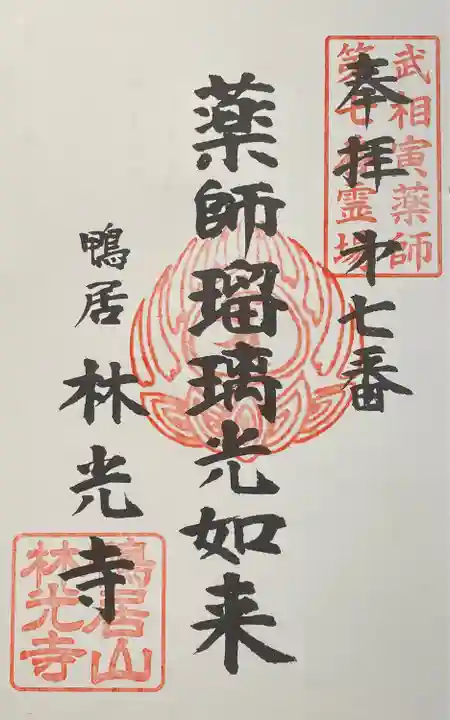 奉拝 第七番
武相寅薬師
第七番霊場
薬師瑠璃光如来
鴨居 林光寺
鴨居山
林光寺